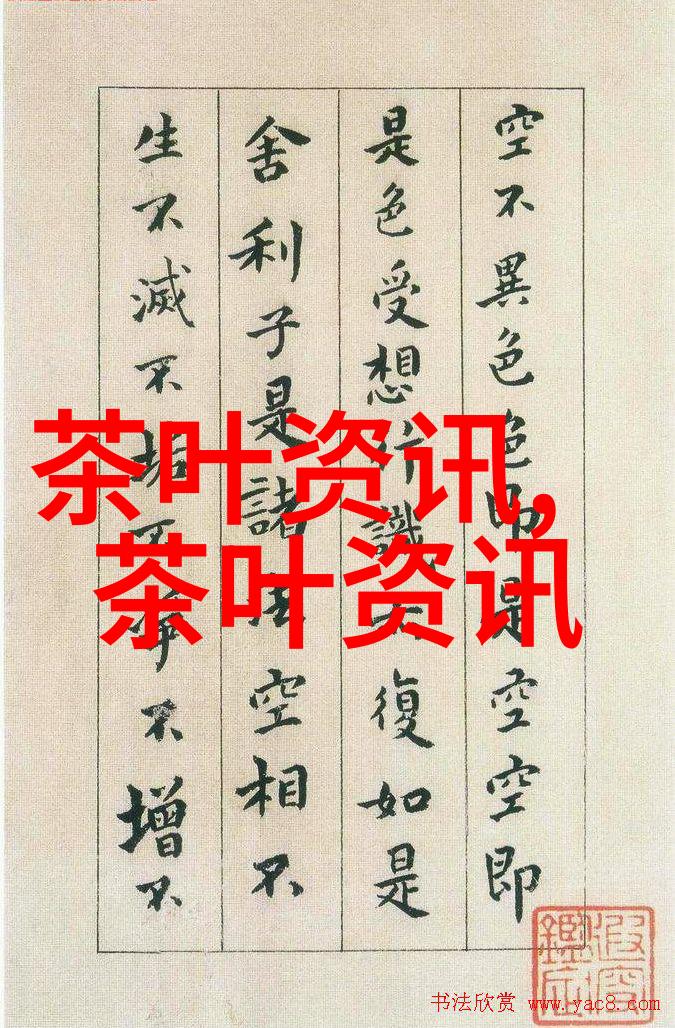 空不異色色即是空空即
是色受想行識亦復如是
舍利子是諸法空相不
生不滅不垢不淨不增不
茶叶资讯,
茶叶资讯
书法欣赏 www.yac8.com